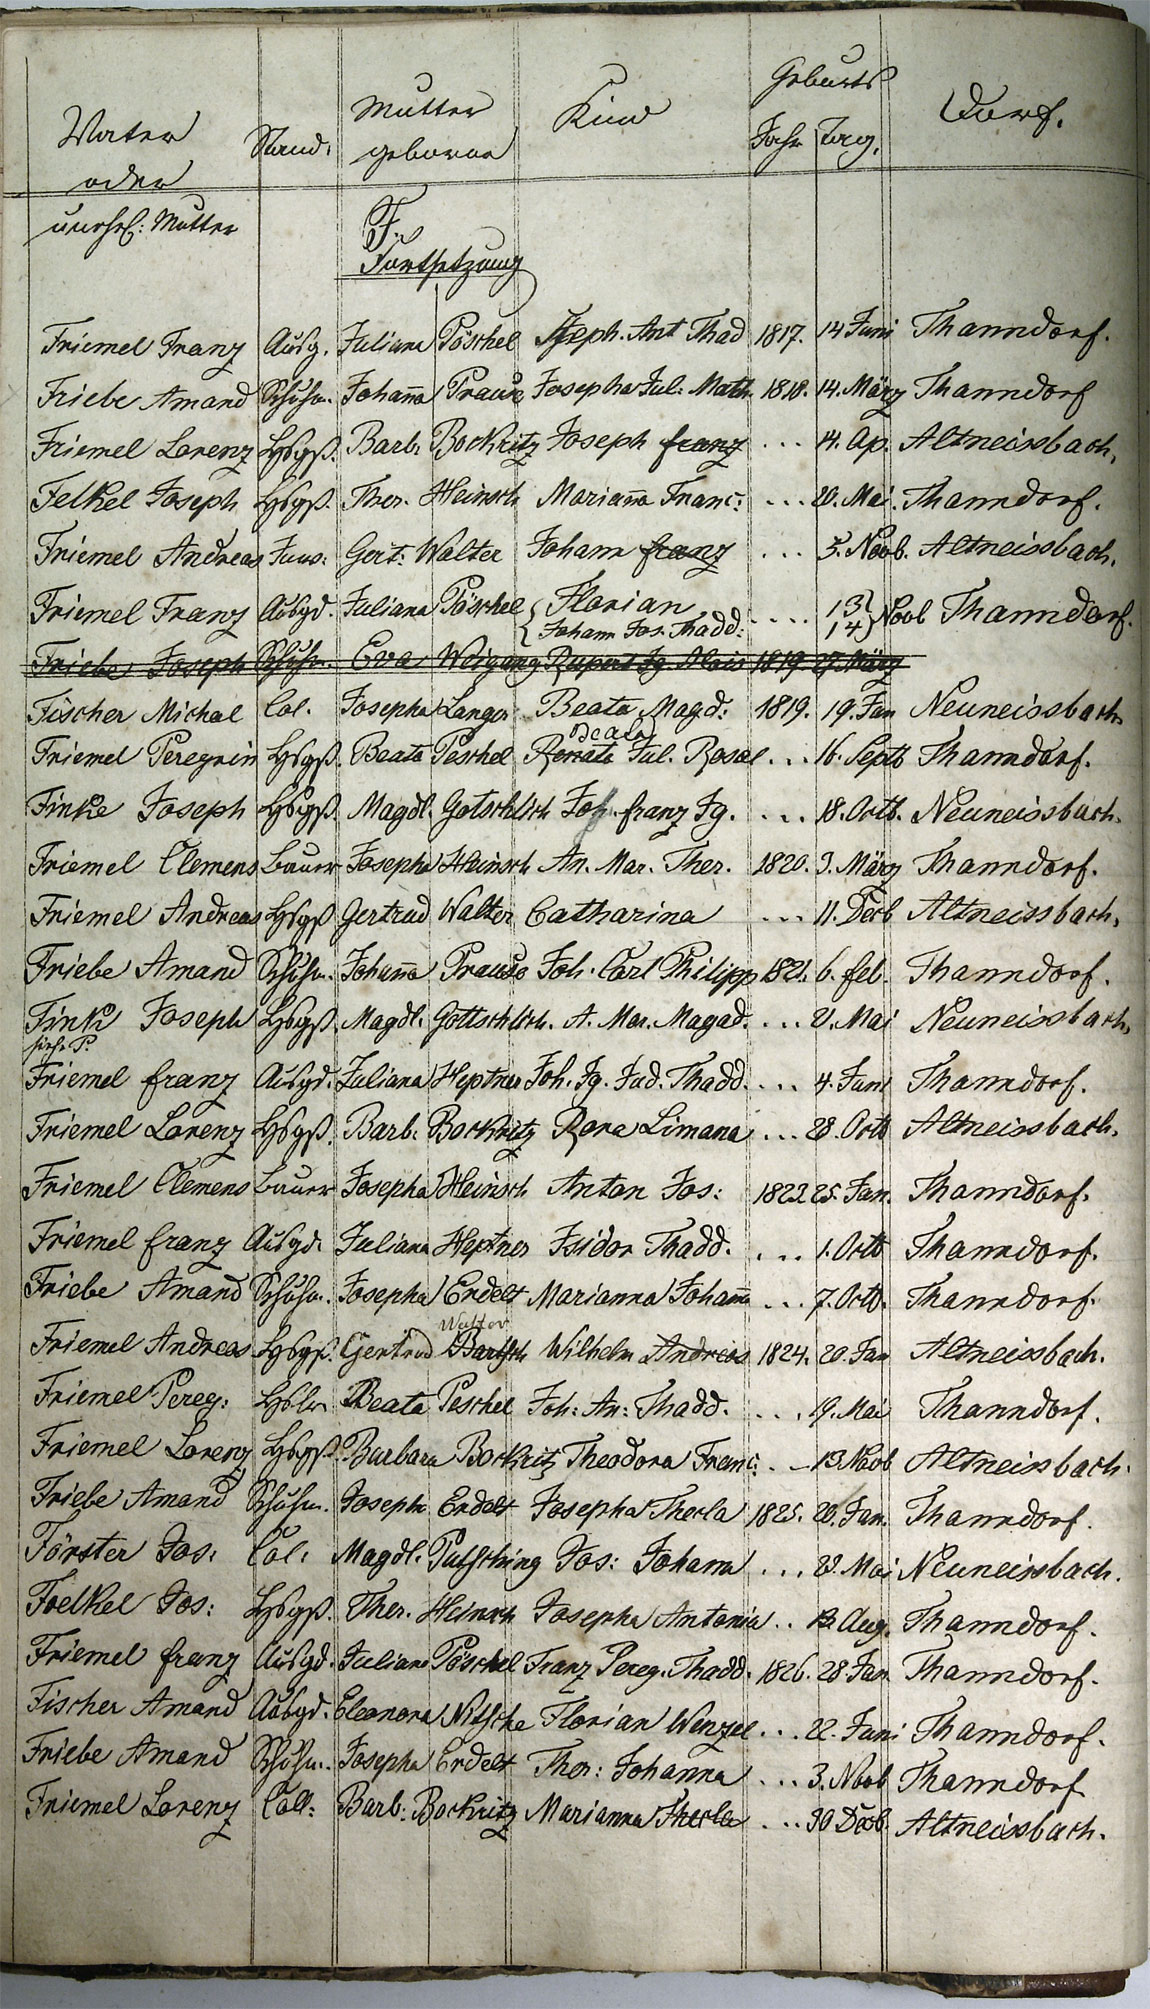 Geburts
Vater Stand. Mutter Kind Jahr Tag. Dorf.
oder geborne
unehel: Mutter
F.
Fortsetzung
Friemel Franz Ausg. Juliana Pöschel Joseph. Ant Thad 1817. 14 Juni Thanndorf.
Friebe Amand Schuhm. Johanna Prause Josepha Jul: Math. 1818. 14. März Thanndorf
Friemel Lorenz Hbgß. Barb. Bockritz Joseph franz ... 14. Ap. Altneissbach.
Felkel Joseph Hbgß. Ther. Heinsch Marianna Franc: ... 20. Mai. Thanndorf.
Friemel Andreas Inw: Gert: Walter Johann franz ... 5. Novb. Altneissbach.
Friemel Franz Ausgd. Juliana Pöschel { Florian .... 13 } Novb Thanndorf.
{ Johann Jos. Thadd: 14 }
Friebe Joseph Schuhm. Eva Weigang Rupert Ig Alois 1819 27. März
Fischer Michal Col. Josepha Langer Beata Magd: 1819. 19. Jan Neuneissbach.
Beata
Friemel Peregrin Hbgß. Beata Peschel Renata Jul. Rosal ... 16. Septb Thanndorf.
Finke Joseph Hbgß. Magdl. Gotschlich Joh. franz Ig. ... 18. Octb. Neuneissbach.
Friemel Clemens Bauer Josepha Heinsch An. Mar. Ther. 1820. 9. März Thanndorf.
Friemel Andreas Hbgß Gertrud Walter Catharina ... 11. Decb Altneissbach.
Friebe Amand Schuhm. Johanna Prause Joh. Carl Philipp 1821. 6. feb. Thanndorf.
Fink Joseph Hbgß. Magdl. Gottschlich. A. Mar. Magad. ... 2. Mai Neuneissbach.
siehe P.
Friemel franz Ausgd. Juliana Heptner Joh. Ig. Jud. Thadd. ... 4. Juni Thanndorf.
Friemel Lorenz Hbgß. Barb. Bockritz Rosa Limana ... 28. Octb Altneissbach.
Friemel Clemens Bauer Josepha Heinsch Anton Jos: 1823 25. Jan. Thanndorf.
Friemel franz Ausgd. Juliana Heptner Isidor Thadd. ... 1. Octb Thanndorf.
Friebe Amand Schuhm. Josepha Erdelt Marianna Johanna ... 7. Octb. Thanndorf.
Walter
Friemel Andreas Hbgß. Gertrud Bartsch Wilhelm Andreas 1824. 20. Jan Altneissbach.
Friemel Pereg: Beata Peschel Joh: An: Thadd. ... 19. Mai Thanndorf.
Friemel Lorenz Hbgß. Barbara Bockritz Theodora Franc: .. 13. Novb Altneissbach.
Friebe Amand Schuhm. Joseph Erdelt Josepha Thecla 1825. 20. Jan. Thanndorf.
Förster Jos: Col: Magdl. Putsching Jos: Johann ... 23. Mai Neuneissbach.
Foelkel Jos: Hbgß. Ther. Heinsch Josepha Antonia .. 13. Aug. Thanndorf.
Friemel franz Ausgd. Juliana Pöschel Franz Pereg. Thadd. 1826. 28 Jan. Thanndorf.
Fischer Amand Ausgd. Eleonora Nitsche Florian Wenzel ... 22. Juni Thanndorf.
Friebe Amand Schuhm. Josepha Erdelt Ther: Johanna ... 3. Novb Thanndorf
Friemel Lorenz Coll: Barb: Bockritz Marianna Thecla ... 30 Decb. Altneissbach.